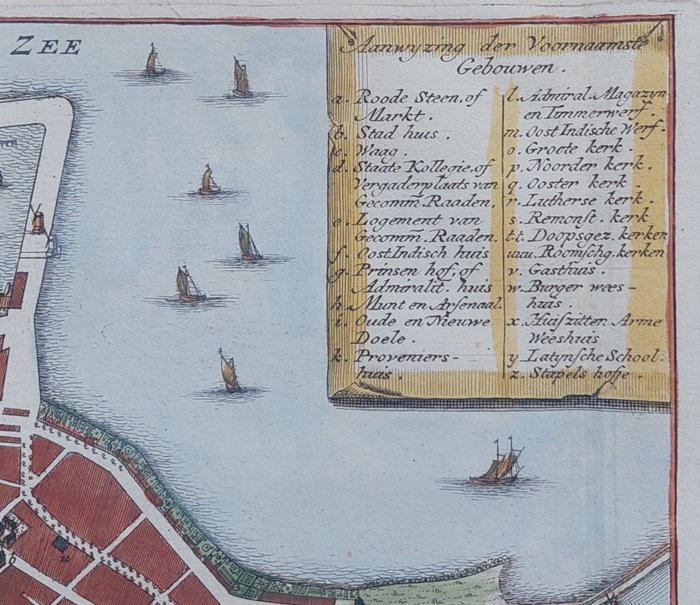 ZEE
Aanwyzing der Voornaamste
Gebouwen.
a. Roode Steen, of
Markt.
b. Stad huis.
c. Waag.
d. Staate Kollegie, of
Vergaderplaats van
Gecomm̃. Raaden.
e. Logement van
Gecomm̃. Raaden.
f. Oost Indisch huis
g. Prinsen hof, of
Admiralit. huis
h. Munt en Arsenaal.
i. Oude en Nieuwe
Doele.
k. Proveniers-
huis.
l. Admiral. Magazyn
en Timmerwerf.
m. Oost Indische Werf.
o. Groote kerk.
p. Noorder kerk.
q. Ooster kerk.
r. Lutherse kerk.
s. Remonst. kerk
t.t. Doopsgez. kerken
uuu. Roomschg. kerken
v. Gasthuis.
w. Burger wees-
huis.
x. Huiszitten Arme
Weeshuis
y. Latynsche School.
z. Stapels hofje.